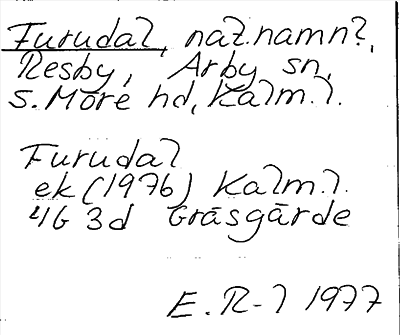 Furudal, nat.namn?,
Resby, Arby sn,
S. Möre hd, Kalm. l.
Furudal
ek (1976) Kalm. l.
4G 3d Gräsgärde
E. R-l 1977